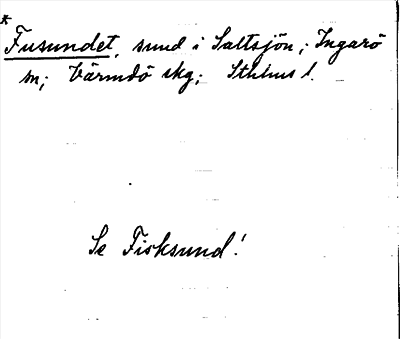 Fusundet, sund i Saltsjön; Ingarö
sn; Värmdö skg; Sthlms l.
Se Fisksund!